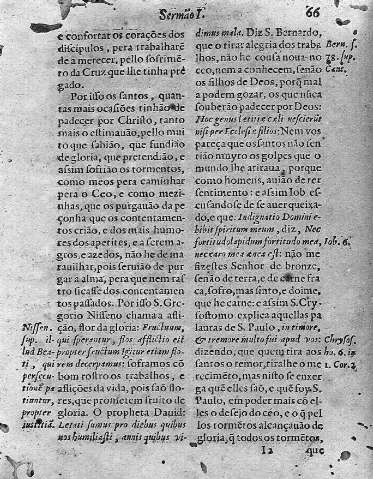 Sermão I. 66
e confortar os corações dos
discipulos, pera trabalharẽ
de a merecer, pello sofrimẽ-
to da Cruz que lhe tinha prê
gado.
Por isso os santos, quan-
tas mais ocasiões tinhão de
padecer por Christo, tanto
mais o estimauão, pello mui
to que sabião, que fundião
de gloria, que pretendião, e
assim sofrião os tormentos,
como meos pera caminhar
pera o Ceo, e como mezi-
nhas, que os purgauão da pe
çonha que os contentamen-
tos crião, e dos mais humo-
res dos apetites, e a serem a-
gros, e azedos, não he de ma
rauilhar, pois seruião de pur-
gar a alma, pera que nem ras
to ficasse dos contentamen-
tos passados. Por isso S. Gre-
gorio Nisseno chama a afli-
ção, flor da gloria: Fructuum,
qui sperantur, flos afflictio est
propter fructum igitur etiam flo-
qui vem decerpamus: soframos cõ
bom rostro os trabalhos, e
aflições da vida, pois são flo-
res, que prometem fruito de
gloria. O propheta Dauid:
Letati sumus pro diebus quibus
nos humiliasti, annis quibus vi-
Nissen.
sup. il
lud Bea-
ti,
persecu-
tionẽ pa
tiuntur,
propter
iustitiã.
dimus mala. Diz S. Bernardo,
que o tirar alegria dos traba
lhos, não he cousa noua no
nem a conhecem, senão
os filhos de Deos, porq̃ mal
a podem gozar, os que nũca
souberão padecer por Deos:
Hoc genus letitiæ cæli nescierũt
nisi per Ecclesiæ filios: Nem vos
pareça que os santos não sen
tião muyto os golpes que o
mundo lhe atiraua, porque
como homens, auião de ter
sentimento: e assim Iob es-
cusandose de se auer queixa-
do, e que Indignatio Domini e-
bibit spiritum meum, diz, Nec
fortitudo lapidum fortitudo mea,
nec caro mea ænea est: não me
fizestes Senhor de bronze,
senão de terra, e de carne fra
ca, sofro, mas sinto, e doime,
que he carne: e assim S. Cry-
sostomo explica aquellas pa
lauras de S. Paulo, in timore,
& tremore multo fui apud vos:
dizendo, que quem tira aos
santos o temor, tiralhe o me
recimẽto, mas nisto se enxer
ga quẽ elles são, e quẽ foy S.
Paulo, em poder mais cõ el-
les o desejo do ceo, e o q̃ pel
los tormẽtos alcançauão de
gloria, q̃ todos os tormẽtos,
Bern. s.
78. sup.
Cant.
Iob. 6.
Chryso.
ho. 6. in
1. Cor. 2
I 2 que